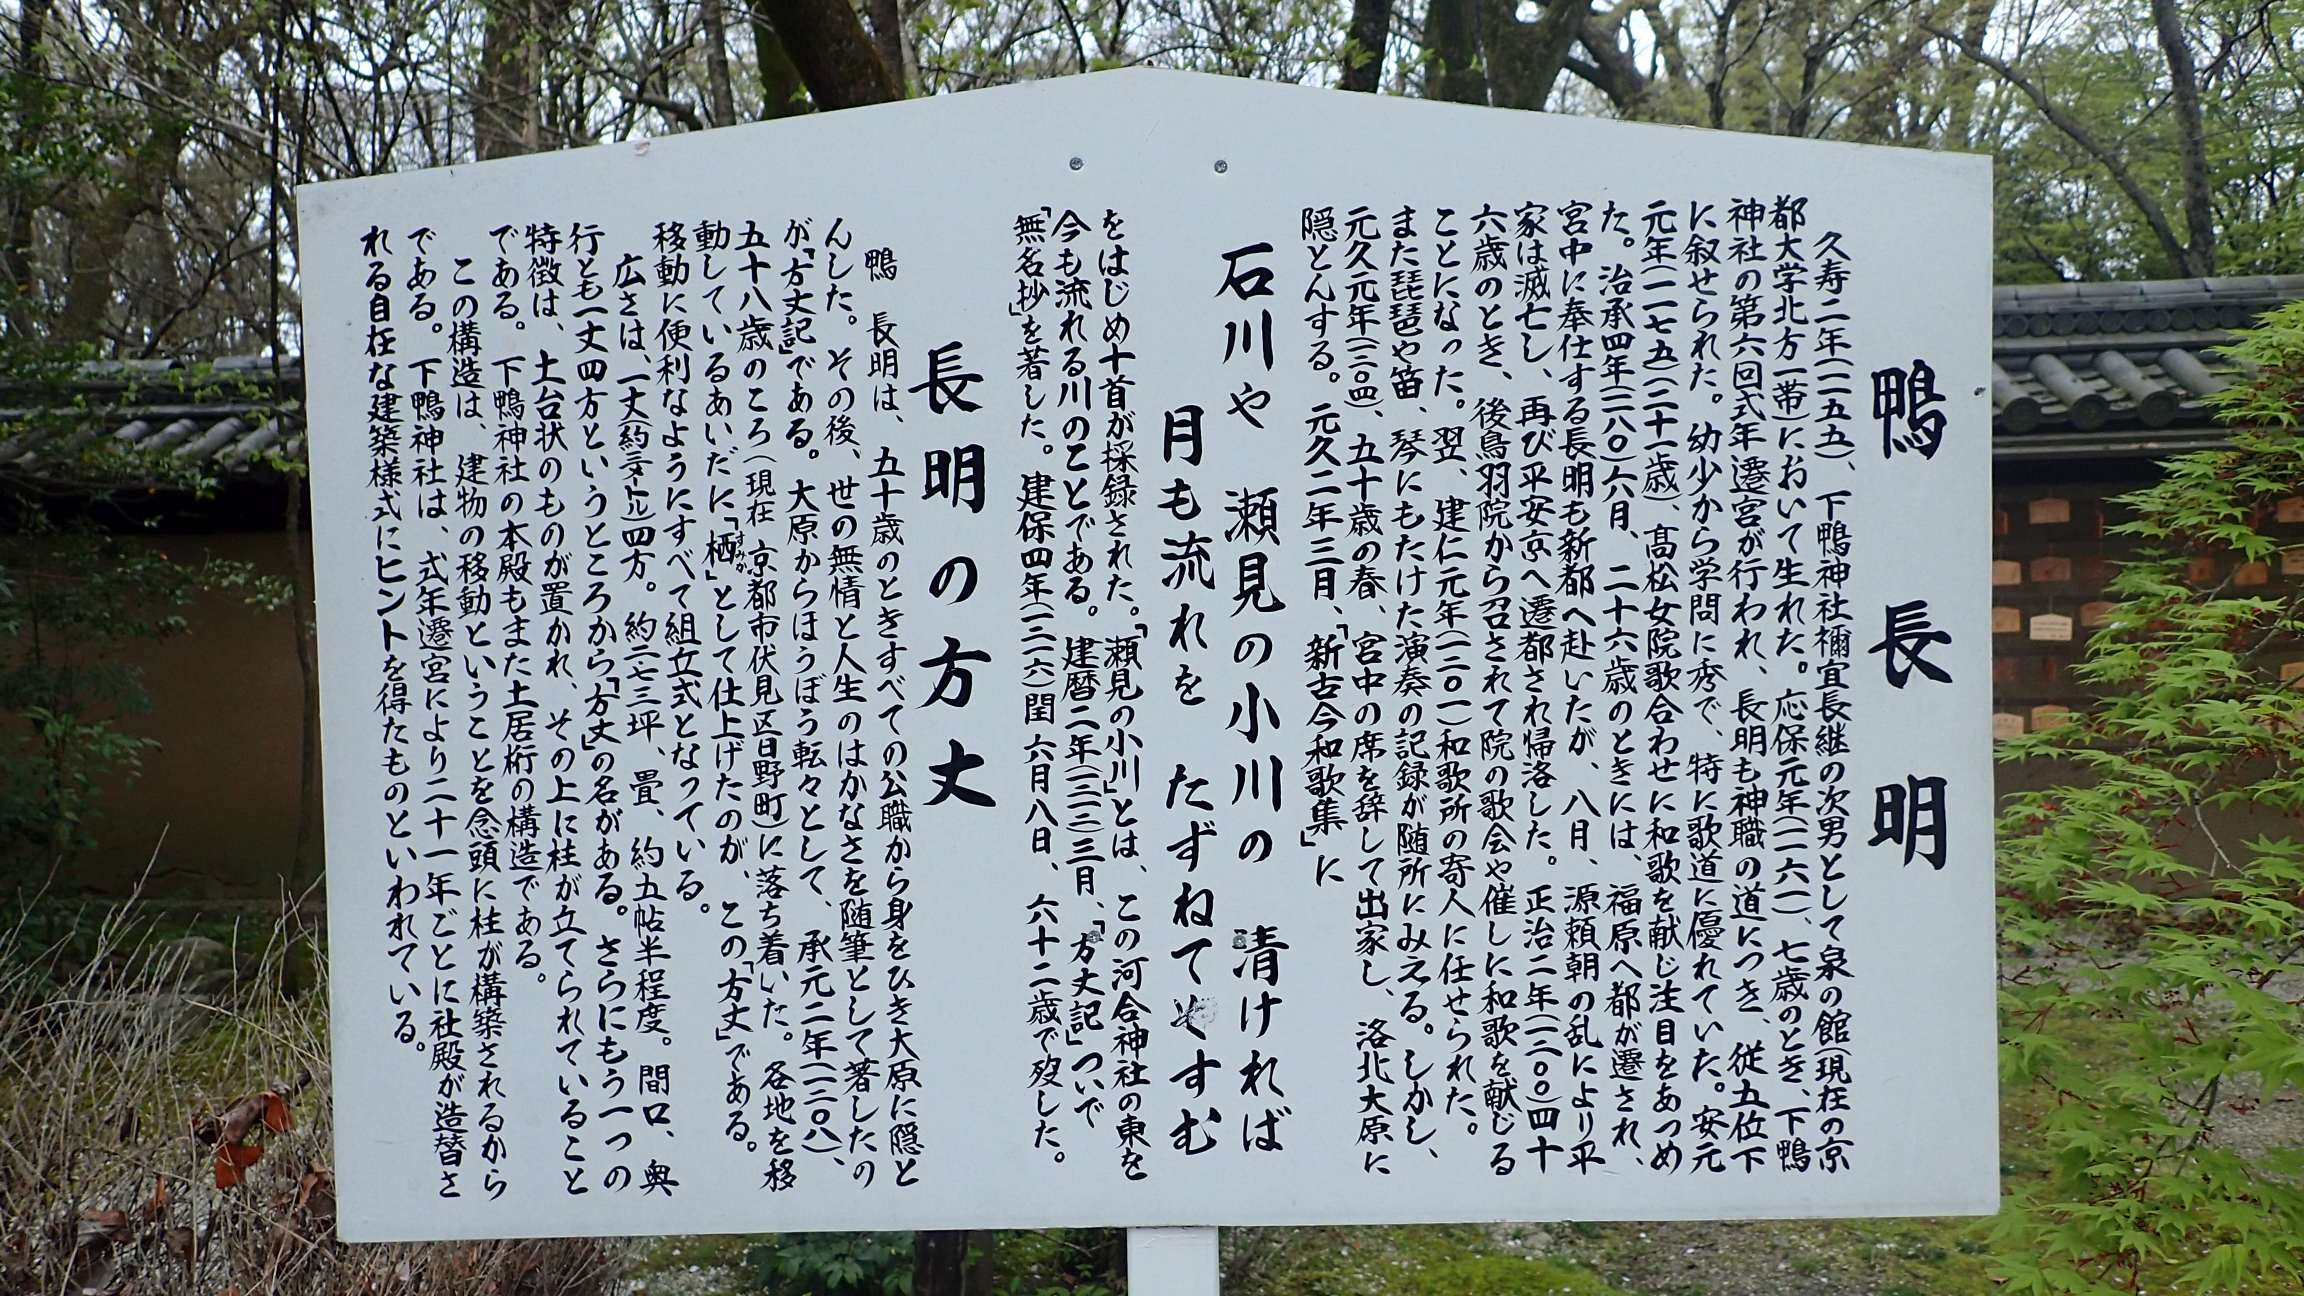 鴨 長 明
久寿二年(一一五五)、下鴨神社禰宜長継の次男として泉の館(現在の京
都大学北方一帯)において生れた。応保元年(一一六一)、七歳のとき、下鴨
神社の第六回式年遷宮が行われ、長明も神職の道につき、従五位下
に叙せられた。幼少から学問に秀で、特に歌道に優れていた。安元
元年(一一七五)(二十一歳)、髙松女院歌合わせに和歌を献じ注目をあつめ
た。治承四年(一一八〇)六月、二十六歳のときには、福原へ都が遷され、
宮中に奉仕する長明も新都へ赴いたが、八月、源頼朝の乱により平
家は滅亡し、再び平安京へ遷都され帰洛した。正治二年(一二〇〇)四十
六歳のとき、後鳥羽院から召されて院の歌会や催しに和歌を献じる
ことになった。翌、建仁元年(一二〇一)和歌所の寄人に任せられた。
また琵琶や笛、琴にもたけた演奏の記録が随所にみえる。しかし、
元久元年(一二〇四)、五十歳の春、宮中の席を辞して出家し、洛北大原に
隠とんする。元久二年三月、「新古今和歌集」に
石川や 瀬見の小川の 清ければ
月も流れを たずねてぞすむ
をはじめ十首が採録された。「瀬見の小川」とは、この河合神社の東を
今も流れる川のことである。建暦二年(一二一二)三月、「方丈記」ついで
「無名抄」を著した。建保四年(一二一六)閏六月八日、六十二歳で歿した。
長明の方丈
鴨 長明は、五十歳のときすべての公職から身をひき大原に隠と
んした。その後、世の無情と人生のはかなさを随筆として著したの
が「方丈記」である。大原からほうぼう転々として、承元二年(一二〇八)、
五十八歳のころ(現在 京都市伏見区日野町)に落ち着いた。各地を移
動しているあいだに「栖」として仕上げたのが、この「方丈」である。
すみか
移動に便利なようにすべて組立式となっている。
広さは、一丈(約三メートル)四方。約二・七三坪、畳、約五帖半程度。間口、奥
行とも一丈四方というところから「方丈」の名がある。さらにもう一つの
特徴は、土台状のものが置かれ、その上に柱が立てられていること
である。下鴨神社の本殿もまた土居桁の構造である。
この構造は、建物の移動ということを念頭に柱が構築されるから
である。下鴨神社は、式年遷宮により二十一年ごとに社殿が造替さ
れる自在な建築様式にヒントを得たものといわれている。